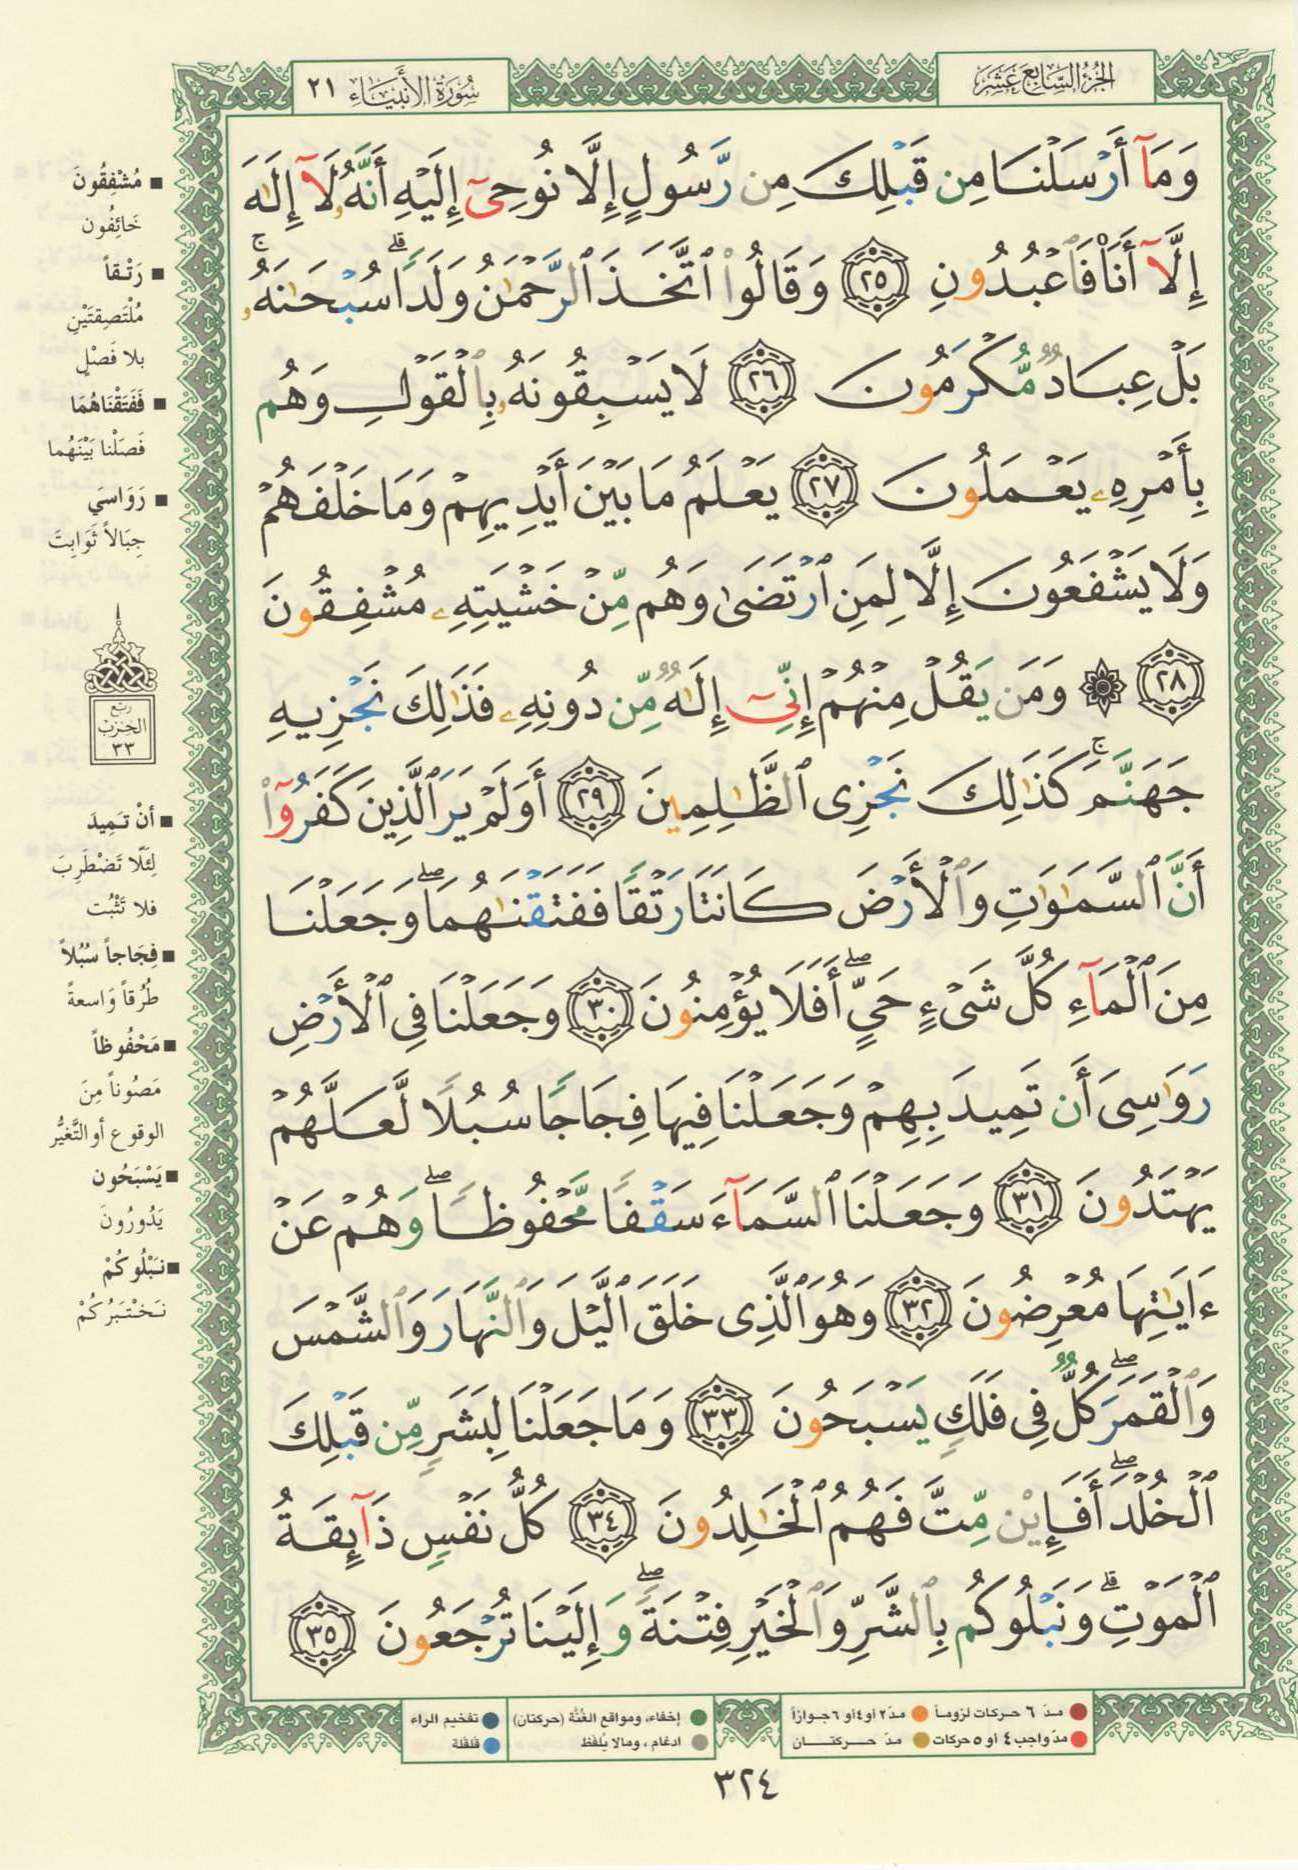 الجزء السابع عشر
سورة الأنبياء ٢١
وَمَآ أَرْسَلْنَا مِن قَبْلِكَ مِن رَّسُولٍ إِلَّا نُوحِىٓ إِلَيْهِ أَنَّهُۥ لَآ إِلَٰهَ
إِلَّآ أَنَا۠ فَٱعْبُدُونِ ٢٥ وَقَالُوا۟ ٱتَّخَذَ ٱلرَّحْمَٰنُ وَلَدًا ۗ سُبْحَٰنَهُۥ ۚ
بَلْ عِبَادٌ مُّكْرَمُونَ ٢٦ لَا يَسْبِقُونَهُۥ بِٱلْقَوْلِ وَهُم
بِأَمْرِهِۦ يَعْمَلُونَ ٢٧ يَعْلَمُ مَا بَيْنَ أَيْدِيهِمْ وَمَا خَلْفَهُمْ
وَلَا يَشْفَعُونَ إِلَّا لِمَنِ ٱرْتَضَىٰ وَهُم مِّنْ خَشْيَتِهِۦ مُشْفِقُونَ
٢٨ ۞ وَمَن يَقُلْ مِنْهُمْ إِنِّىٓ إِلَٰهٌ مِّن دُونِهِۦ فَذَٰلِكَ نَجْزِيهِ
جَهَنَّمَ ۚ كَذَٰلِكَ نَجْزِى ٱلظَّٰلِمِينَ ٢٩ أَوَلَمْ يَرَ ٱلَّذِينَ كَفَرُوٓا۟
أَنَّ ٱلسَّمَٰوَٰتِ وَٱلْأَرْضَ كَانَتَا رَتْقًا فَفَتَقْنَٰهُمَا ۖ وَجَعَلْنَا
مِنَ ٱلْمَآءِ كُلَّ شَىْءٍ حَىٍّ ۖ أَفَلَا يُؤْمِنُونَ ٣٠ وَجَعَلْنَا فِى ٱلْأَرْضِ
رَوَٰسِىَ أَن تَمِيدَ بِهِمْ وَجَعَلْنَا فِيهَا فِجَاجًا سُبُلًا لَّعَلَّهُمْ
يَهْتَدُونَ ٣١ وَجَعَلْنَا ٱلسَّمَآءَ سَقْفًا مَّحْفُوظًا ۖ وَهُمْ عَنْ
ءَايَٰتِهَا مُعْرِضُونَ ٣٢ وَهُوَ ٱلَّذِى خَلَقَ ٱلَّيْلَ وَٱلنَّهَارَ وَٱلشَّمْسَ
وَٱلْقَمَرَ ۖ كُلٌّ فِى فَلَكٍ يَسْبَحُونَ ٣٣ وَمَا جَعَلْنَا لِبَشَرٍ مِّن قَبْلِكَ
ٱلْخُلْدَ ۖ أَفَإِي۟ن مِّتَّ فَهُمُ ٱلْخَٰلِدُونَ ٣٤ كُلُّ نَفْسٍ ذَآئِقَةُ
ٱلْمَوْتِ ۗ وَنَبْلُوكُم بِٱلشَّرِّ وَٱلْخَيْرِ فِتْنَةً ۖ وَإِلَيْنَا تُرْجَعُونَ ٣٥
■ مُشْفِقُونَ
خَائِفُون
■ رَتْقاً
مُلْتَصِقَتَيْنِ
بلا فَصْلٍ
■ فَفَتَقْنَاهُمَا
فَصَلْنا بَيْنَهُما
■ رَوَاسِيَ
جِبَالاً ثَوَابِتَ
ربع
الحزب
٣٣
■ أنْ تَمِيدَ
لِئَلّا تَضْطَرِبَ
فلا تَثْبُت
■ فِجَاجاً سُبُلاً
طُرُقاً وَاسعةً
■ مَحْفُوظاً
مَصُوناً مِنَ
الوقوع أو التَّغيُّر
■ يَسْبَحُون
يَدُورُونَ
■ نَبْلُوكُمْ
نَخْتَبِرُكُمْ
مدّ ٦ حركات لزوماً مدّ٢ أو٤أو ٦ جوازاً
مدّ واجب ٤ أو ٥ حركات مدّ حركتان
إخفاء، ومواقع الغُنَّة (حركتان) تفخيم الراء
ادغام ، ومالا يُلفَظ قلقلة
٣٢٤